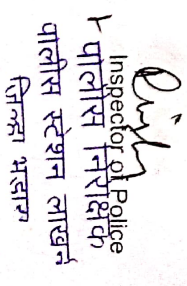 Inspector of Police
पोलीस निरीक्षक
पोलीस स्टेशन लाखनी
जिल्हा भंडारा